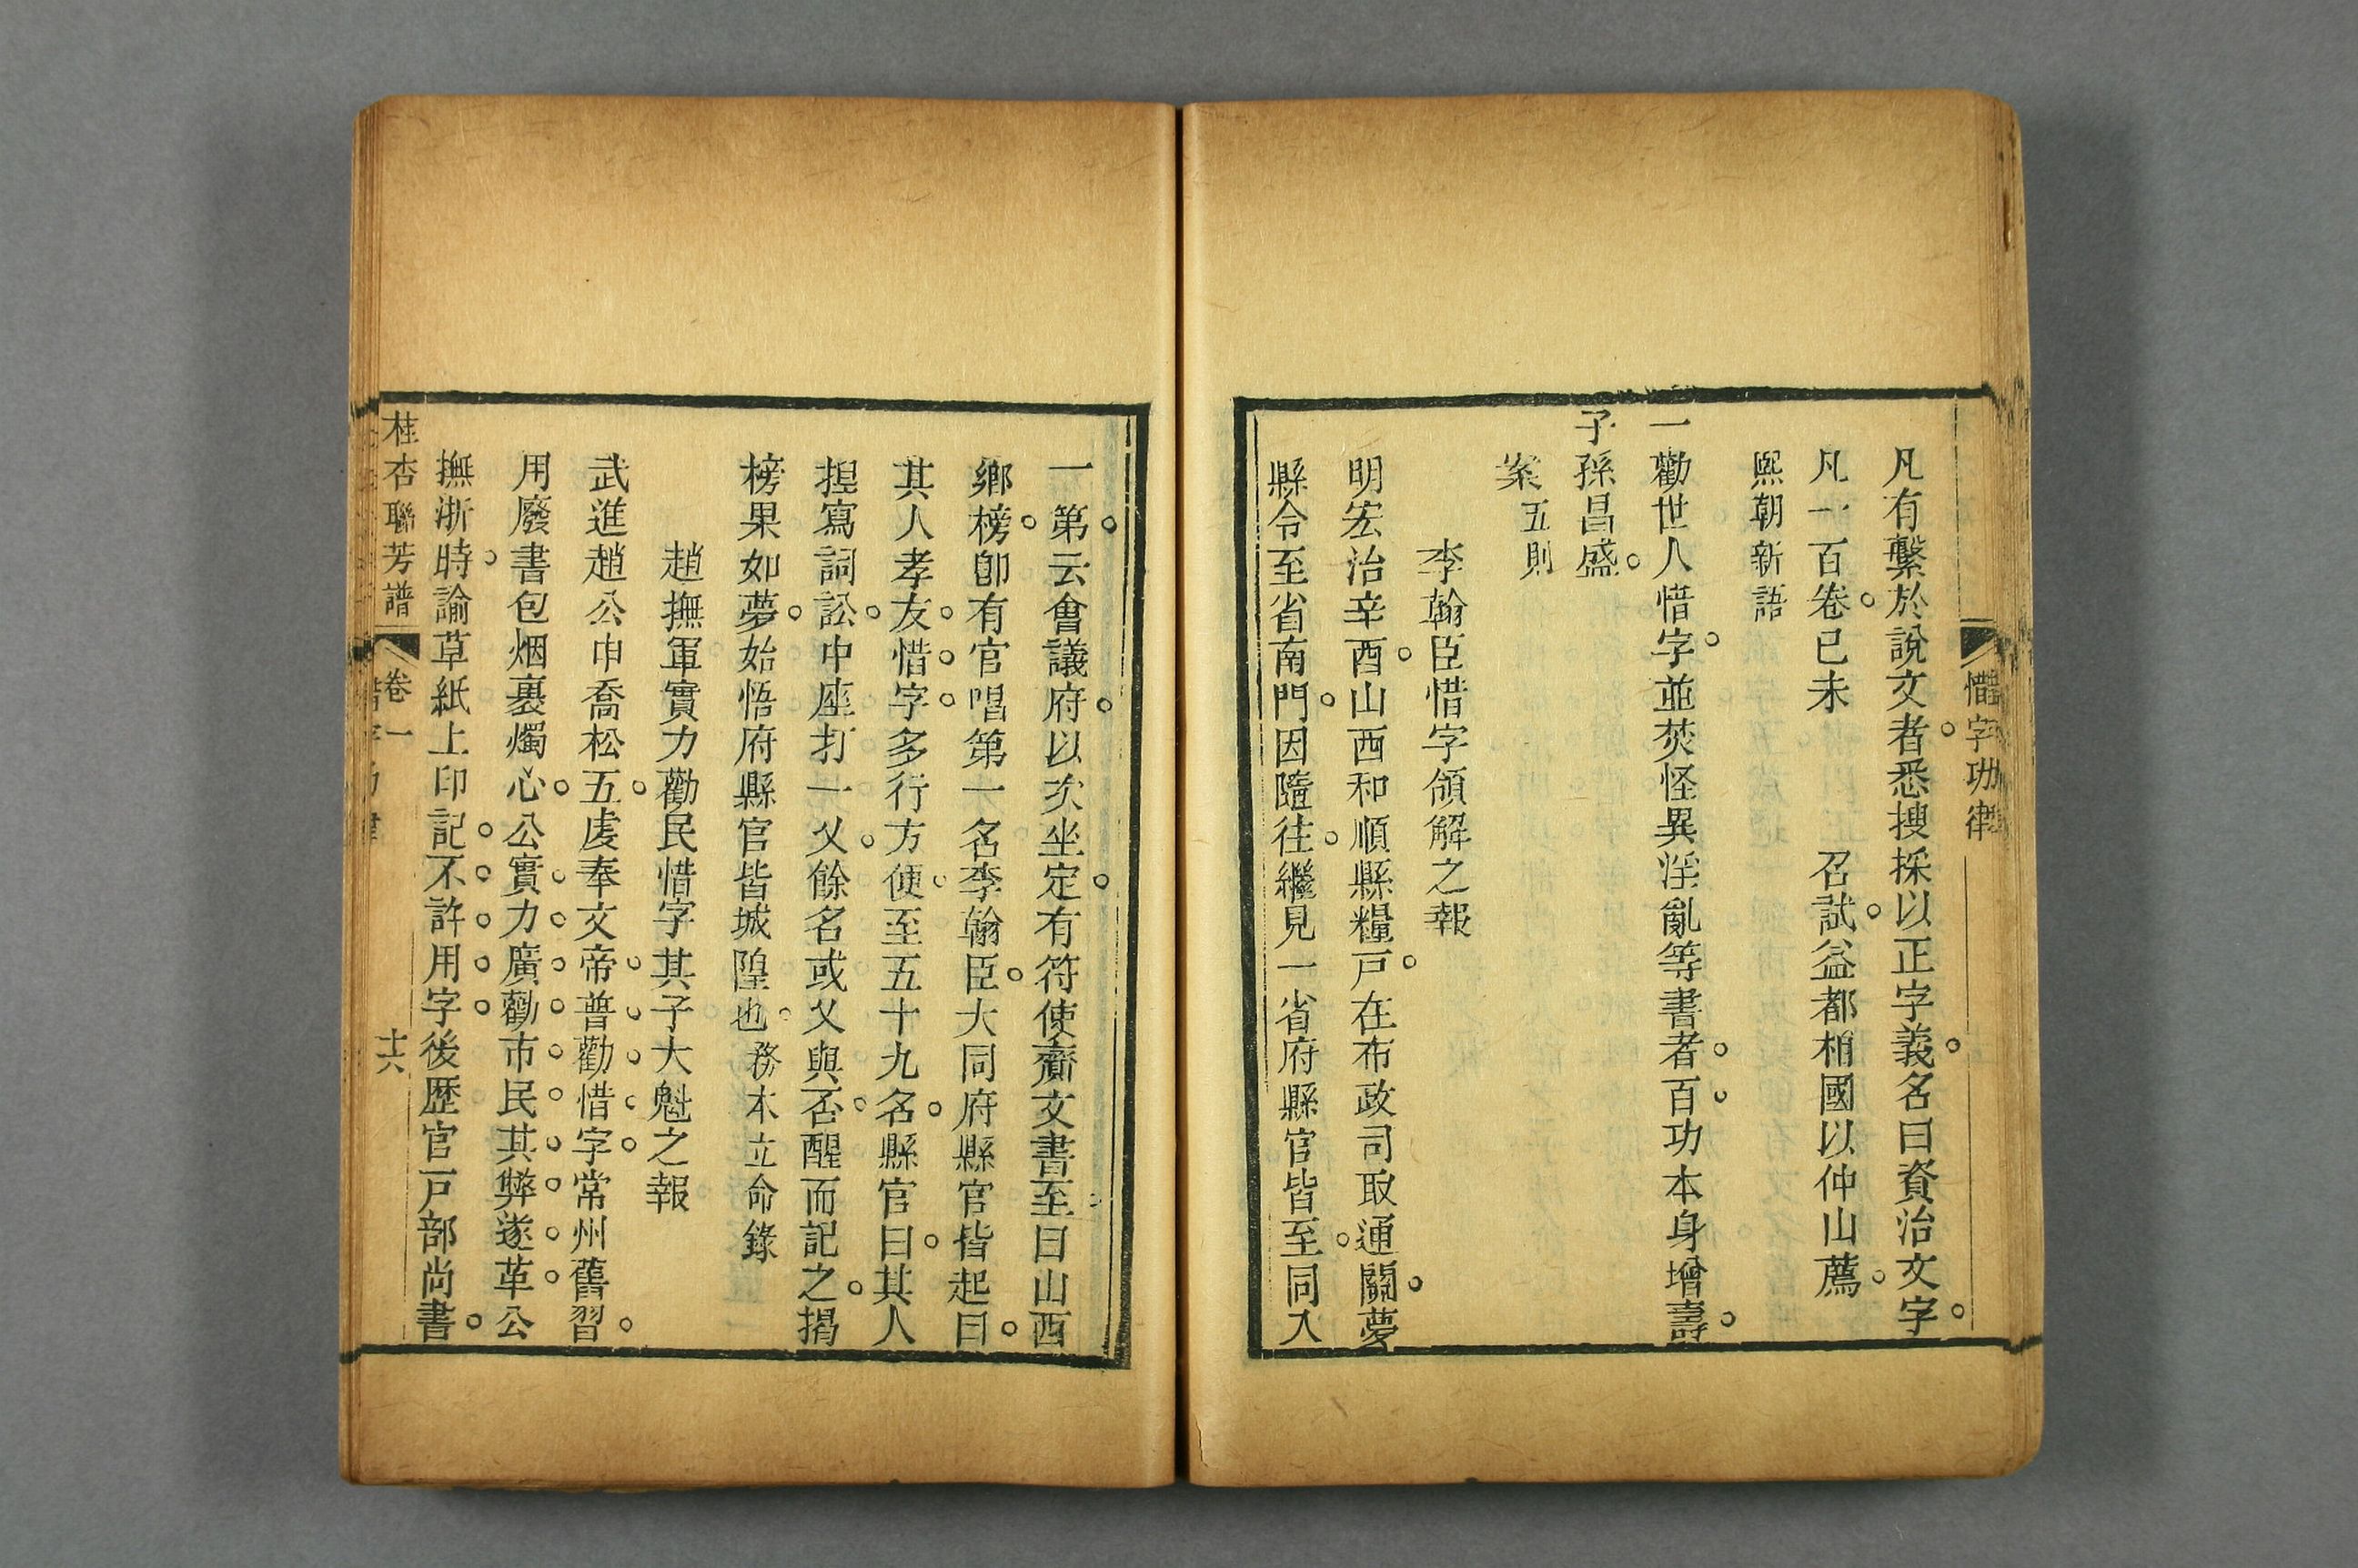 惜字功律
凡有繫於說文者悉搜採以正字義名曰資治文字
凡一百卷已未　　　召試益都相國以仲山薦
熙朝新語
一勸世人惜字並焚怪異淫亂等書者百功本身增壽
子孫昌盛
案五則
李翰臣惜字領解之報
明宏治辛酉山西和順縣糧戸在布政司取通關夢
縣令至省南門因隨往繼見一省府縣官皆至同入
一第云會議府以次坐定有符使齎文書至曰山西
鄉榜卽有官唱第一名李翰臣大同府縣官皆起曰
其人孝友惜字多行方便至五十九名縣官曰其人
捏寫詞訟中座打一乂餘名或乂與否醒而記之揭
榜果如夢始悟府縣官皆城隍也務本立命錄
趙撫軍實力勸民惜字其子大魁之報
武進趙公申喬松五虔奉文帝普勸惜字常州舊習
用廢書包烟裹燭心公實力廣勸市民其弊遂革公
撫浙時諭草紙上印記不許用字後歷官戸部尚書
桂杏聯芳譜　卷一　十六